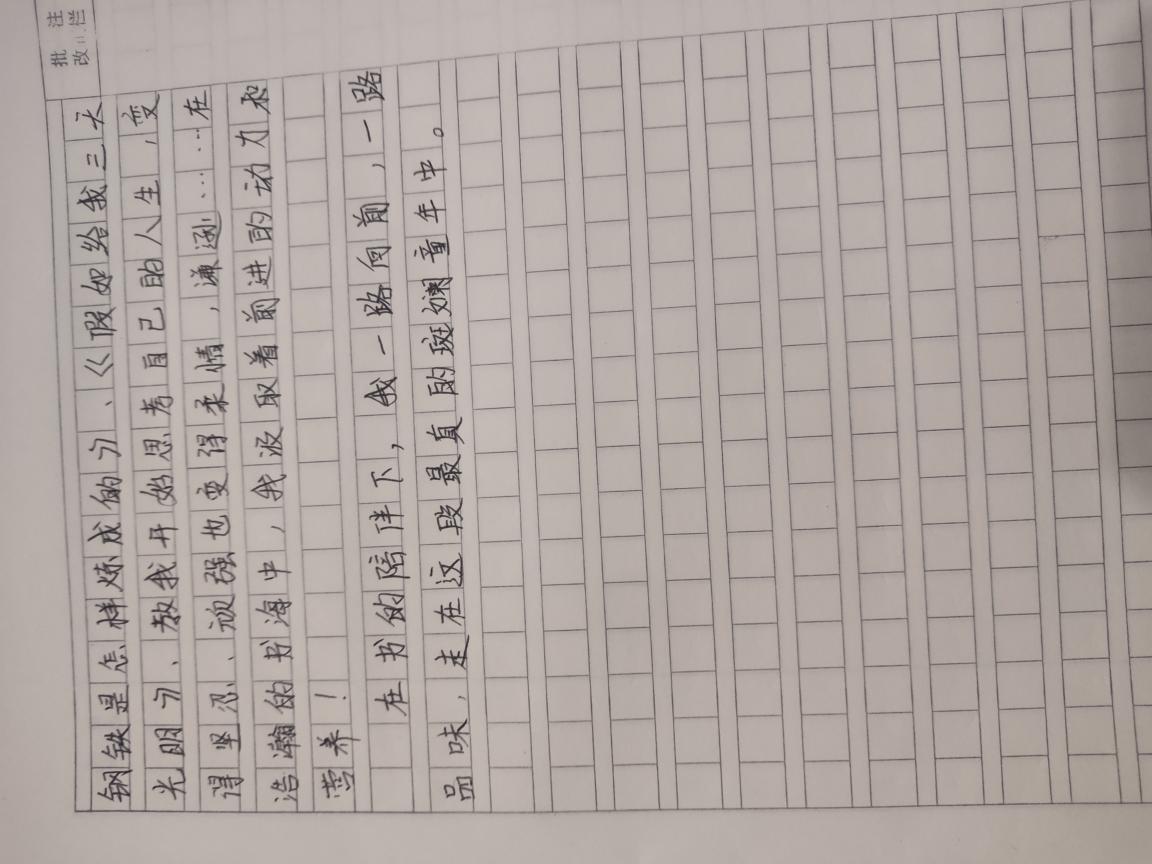 批注
改栏
钢铁是怎样炼成的》、《假如给我三天
光明》、教我开始思考自己的人生,变
得坚忍、顽强也变得柔情,谦逊……在
浩瀚的书海中,我汲取着前进的动力和
营养!
在书的陪伴下,我一路向前,一路
品味,走在这段最真的斑斓童年中。